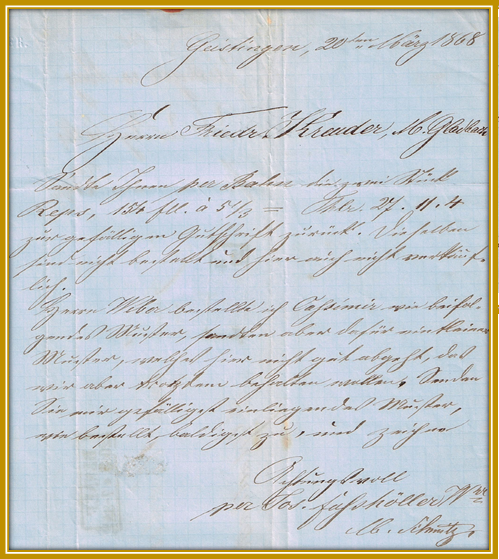 Geistingen, 20ten März 1868
Herrn Friedr. Kreuder, M. Gladbach
Sandte Ihnen per Bahn die zwei Stück
Reps, 156 Ell. á 5 1/3 = Thlr. 27. 11. 4
zur gefälligen Gutschrift zurück. Dieselben
sind nicht bestellt und hier auch nicht verkäuf-
lich.
Herrn Weber bestellte ich Cassimir wie beifol-
gendes Muster, sandten aber dafür ein kleines
Muster, welches hier nicht gut abgeht, das
wir aber trotzdem behalten wollen. Senden
Sie mir gefälligst einliegendes Muster,
wie bestellt, baldigst zu, und zeichne
Achtungsvoll
per Jos. Wwe
M. Schmitz.